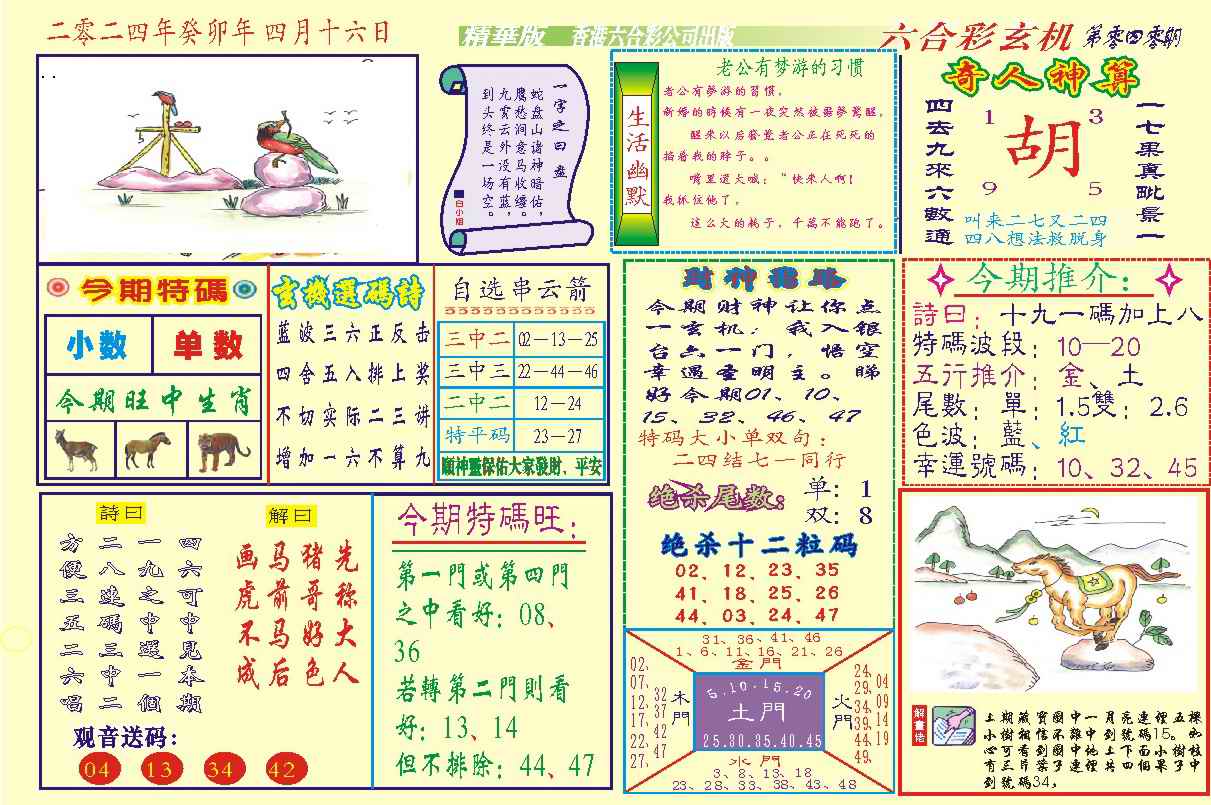 二零二四年癸卯年 四月十六日
精華版 香港六合彩公司出版
六合彩玄机 第零四零期
一字之曰：盘
蛇盘山诸神暗佑，
鹰愁涧意马收缰。
九霄云外没有蓝，
到头终是一场空。
白小姐
生活幽默
老公有梦游的习惯
老公有夢游的習慣。
新婚的時候有一夜突然被噩夢驚醒，
醒来以后發覺老公正在死死的
掐着我的脖子。。
嘴里還大喊：“快来人啊！
我抓住他了。
這么大的耗子，千萬不能跑了。
奇人神算
四去九來六數通
1 3
胡
9 5
一七果真毗景一
叫来二七又二四
四八想法救脱身
今期特碼
小数 单数
今期旺中生肖
玄機選碼詩
蓝波三六正反击
四舍五入排上奖
不切实际二三讲
增加一六不算九
自选串云箭
三中二 02－13－25
三中三 22－44－46
二中二 12－24
特平码 23－27
願神靈保佑大家發財、平安
财神指路
今期财神让你点
一玄机：我入银
台六一门，悟空
幸遇圣明主。睇
好今期01、10、
15、32、46、47
特码大小单双句：
二四结七一同行
绝杀尾数：
单：1
双：8
绝杀十二粒码
02、12、23、35
41、18、25、26
44、03、24、47
今期推介：
詩曰：十九一碼加上八
特碼波段：10—20
五行推介：金、土
尾數：單：1.5雙：2.6
色波：藍、紅
幸運號碼：10、32、45
詩曰
四六可中見本期
一九之中選一個
二八速碼三中二
方便三五二六唱
解曰
先称大人
猪哥好色
马前马后
画虎不成
观音送码：
04 13 34 42
今期特碼旺：
第一門或第四門
之中看好：08、
36
若轉第二門則看
好：13、14
但不排除：44、47
31、36、41、46
1、6、11、16、21、26
金門
02、
07、
12、
17、
22、
27、
32
37
42
47
木門
5.10.15.20
土門
25.30.35.40.45
火門
24、
29、
34、
39、
44、
49、
04
09
14
19
水門
3、8、13、18
23、28、33、38、43、48
解畫佬
上期藏寶圖中一月亮連裡五棵
小樹相信不難中到號碼15。如
心可看到圖中地上下面小樹枝
有三片葉子連裡共四個果子中
到號碼34，